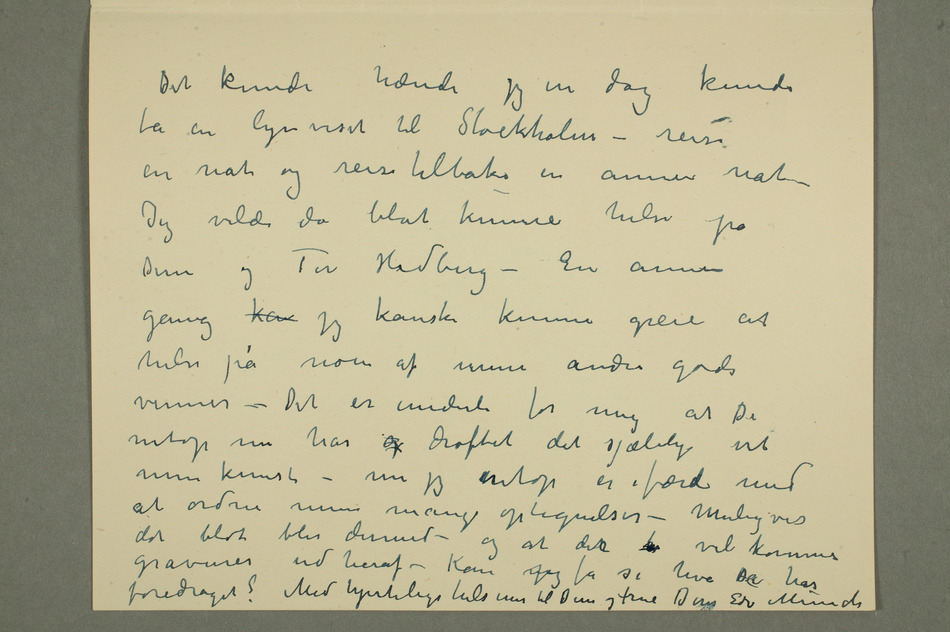 Det kunde hænde jeg en dag kunde
ta en lynvisit til Stockholm – reise
en nat og reise tilbake en annen nat –
Jeg vilde da blot kunne hilse på
Dem og Tor Hedberg – En annen
gang kan jeg kanske kunne greie at
hilse på noen af mine andre gode
venner – Det er underli for mig at De
netop nu har og drøftet det sjælelige ved
min kunst – nu jeg netop er ifærd med
at ordne mine mange optegnelser – Muligvis
det blot blir dermed – og at der vil komme
gravurer ud heraf – Kan jeg få se hva De har
foredraget? Med hjerteligs hilsener til Dem og Frue Deres Edv Munch